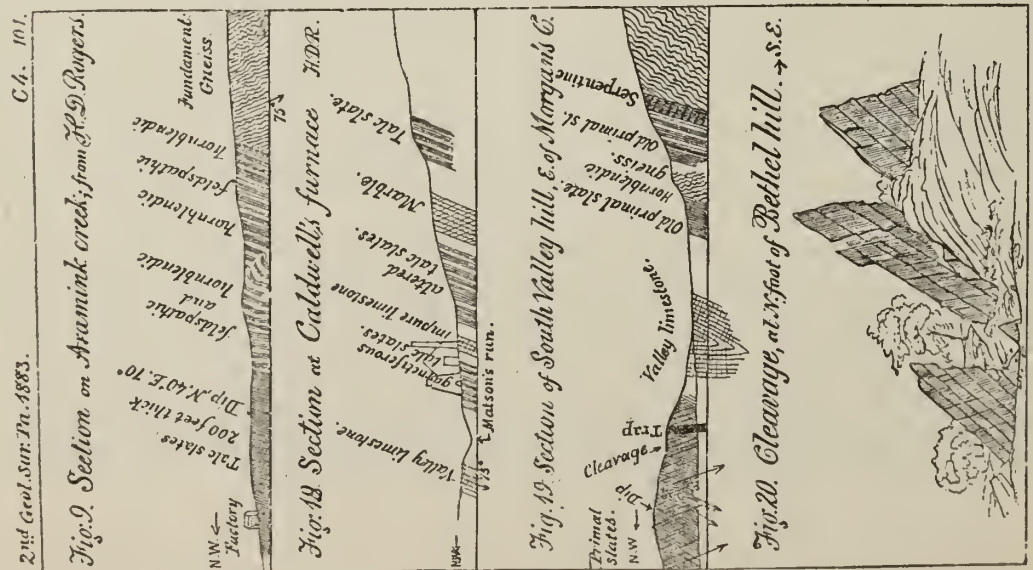 2nd Geol. Sur. Pa. 1883.
C4. 101.
Fig: 9. Section on Aramink creek; from H.D. Rogers.
N.W.
Factory
Talc slates.
200 feet thick
Dip, N. 40° E. 70°
feldspathic
and
hornblendic.
hornblendic
feldspathic
hornblendic
Fundament
Gneiss.
75°
Fig: 18. Section at Caldwell's furnace H.D.R.
Valley limestone.
75°
Matson's run.
garnetiferous
talc slates.
impure limestone
altered
talc slates.
Marble.
Talc slate.
Fig. 19. Section of South Valley hill, E. of Morgan's C.
Primal
slates.
N.W
Dip
Cleavage
Trap
Valley limestone.
Old primal slate.
Hornblendic
gneiss.
Old primal sl.
Serpentine
Fig. 20. Cleavage, at N. foot of Bethel hill. → S.E.